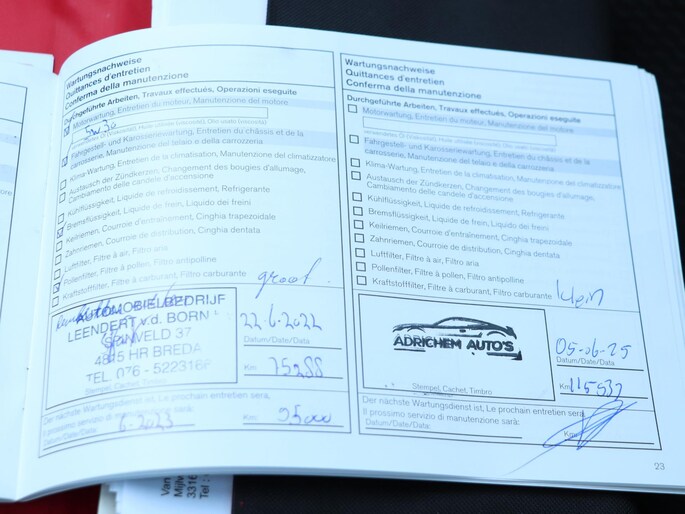 Wartungsnachweise
Quittances d'entretien
Conferma della manutenzione
Durchgeführte Arbeiten, Travaux effectués, Operazioni eseguite
Motorwartung, Entretien du moteur, Manutenzione del motore
5w30
Fahrgestell- und Karosseriewartung, Entretien du châssis et de la
carrosserie, Manutenzione del telaio e della carrozzeria
Klima-Wartung, Entretien de la climatisation, Manutenzione del climatizzatore
Austausch der Zündkerzen, Changement des bougies d'allumage,
Cambiamento delle candele d'accensione
Kühlflüssigkeit, Liquide de refroidissement, Refrigerante
Bremsflüssigkeit, Liquide de frein, Liquido dei freini
Keilriemen, Courroie d'entraînement, Cinghia trapezoidale
Zahnriemen, Courroie de distribution, Cinghia dentata
Luftfilter, Filtre à air, Filtro aria
Pollenfilter, Filtre à pollen, Filtro antipolline
Kraftstofffilter, Filtre à carburant, Filtro carburante
groot
AUTOMOBIELBEDRIJF
LEENDERT v.d. BORN
SPINVELD 37
4815 HR BREDA
TEL. 076 - 522316
Stempel, Cachet, Timbro
22-6-2022
Datum/Date/Data
Km 75288
Der nächste Wartungsdienst ist, Le prochain entretien sera,
Il prossimo servizio di manutenzione sarà:
Datum/Date/Data 6-2023
Km 95000
Wartungsnachweise
Quittances d'entretien
Conferma della manutenzione
Durchgeführte Arbeiten, Travaux effectués, Operazioni eseguite
Motorwartung, Entretien du moteur, Manutenzione del motore
Fahrgestell- und Karosseriewartung, Entretien du châssis et de la
carrosserie, Manutenzione del telaio e della carrozzeria
Klima-Wartung, Entretien de la climatisation, Manutenzione del climatizzatore
Austausch der Zündkerzen, Changement des bougies d'allumage,
Cambiamento delle candele d'accensione
Kühlflüssigkeit, Liquide de refroidissement, Refrigerante
Bremsflüssigkeit, Liquide de frein, Liquido dei freini
Keilriemen, Courroie d'entraînement, Cinghia trapezoidale
Zahnriemen, Courroie de distribution, Cinghia dentata
Luftfilter, Filtre à air, Filtro aria
Pollenfilter, Filtre à pollen, Filtro antipolline
Kraftstofffilter, Filtre à carburant, Filtro carburante
klein
ADRICHEM AUTO'S
Stempel, Cachet, Timbro
05-06-25
Datum/Date/Data
Km 115537
Der nächste Wartungsdienst ist, Le prochain entretien sera,
Il prossimo servizio di manutenzione sarà:
Datum/Date/Data
Km
23
Van
Mijlw
3316
Tel :